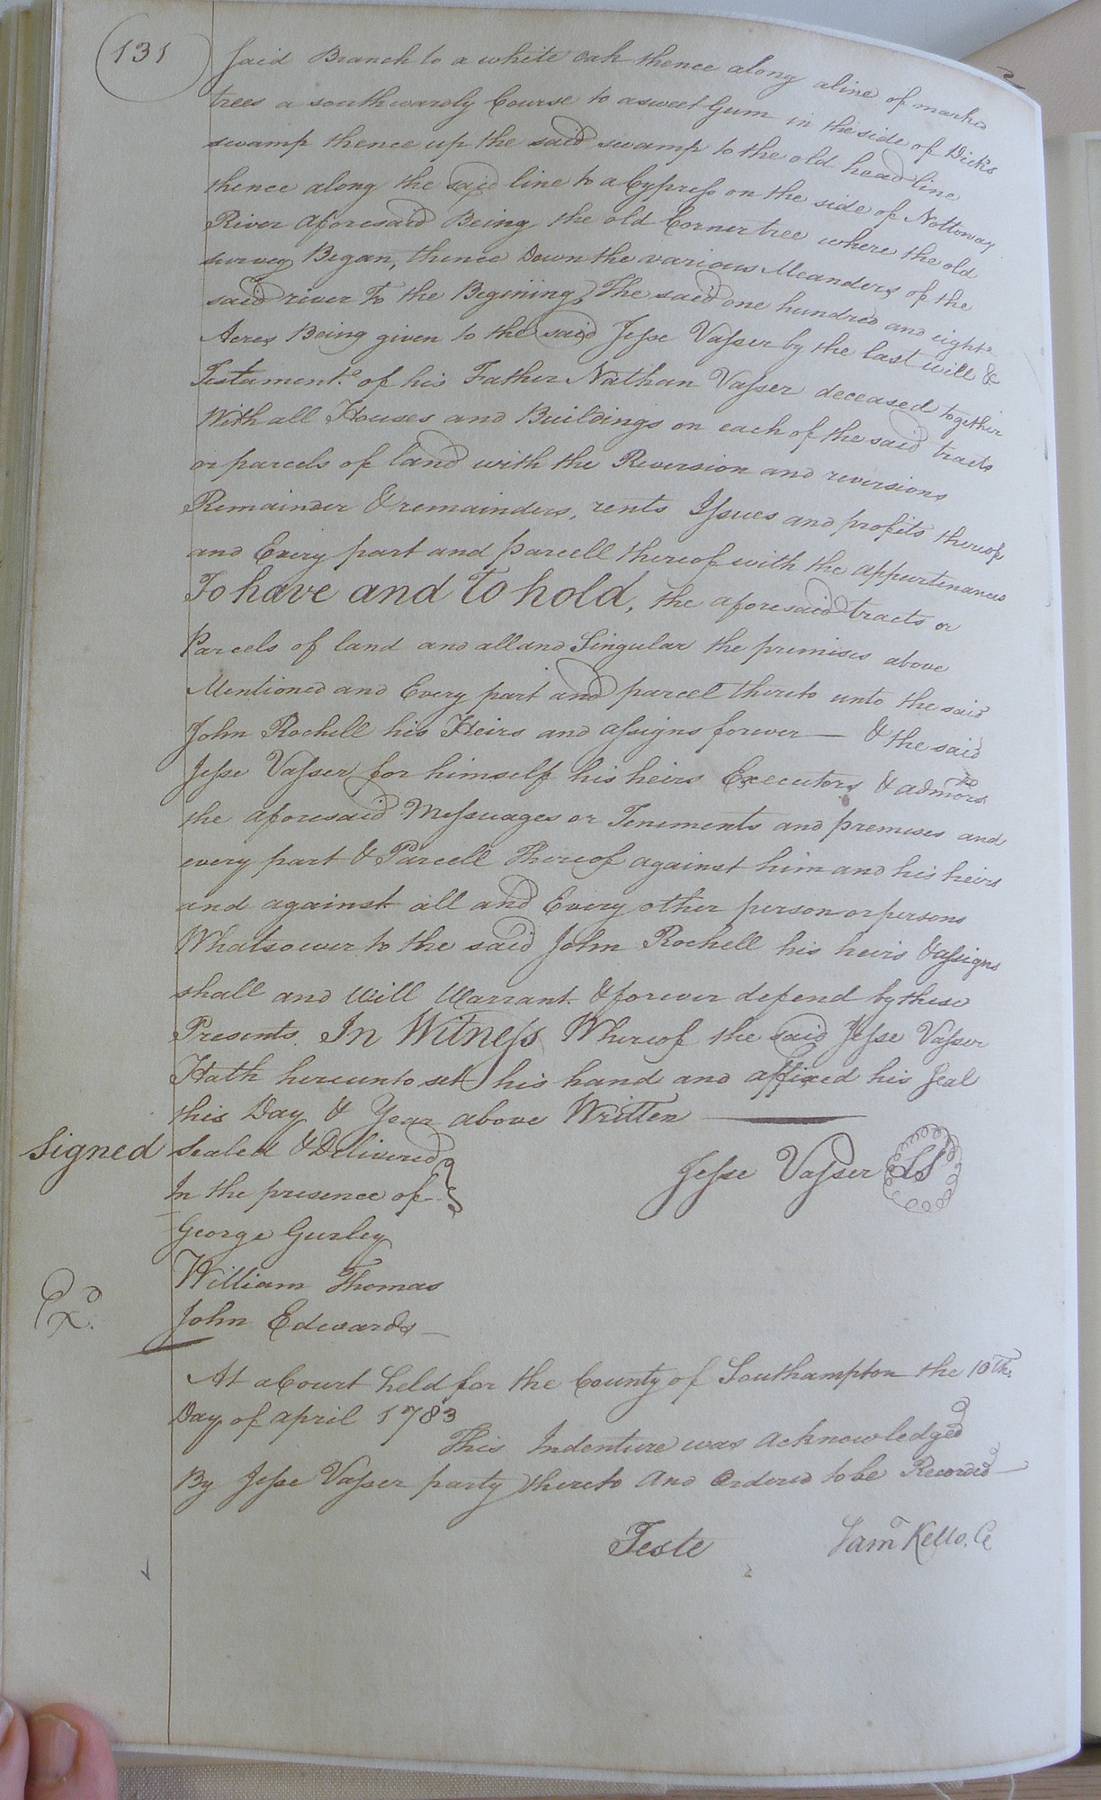 131
said Branch to a white oak thence along a line of marked
trees a southwardly Course to a sweet Gum in the side of Dicks
swamp thence up the said swamp to the old head line
thence along the said line to a Cypress on the side of Nottoway
River aforesaid Being the old Corner tree where the old
survey Began, thence Down the various Meanders of the
said river To the Begining, The said one hundred and eight
Acres Being given to the said Jesse Vasser by the last will &
Testament.o of his Father Nathan Vasser deceased together
With all Houses and Buildings on each of the said tracts
or parcels of land with the Reversion and reversions
Remainder & remainders, rents Issues and profits thereof
and Every part and parcell thereof with the appurtenances
To have and to hold, the aforesaid tracts or
Parcels of land and all and Singular the premises above
Mentioned and Every part and parcel thereto unto the said
John Rochell his Heirs and assigns forever — & the said
Jesse Vasser for himself his heirs Executors & admors
the aforesaid Messuages or Tenements and premises and
every part & Parcell Thereof against him and his heirs
and against all and Every other person or persons
Whatsoever to the said John Rochell his heirs & assigns
shall and will Warrant & forever defend by these
Presents. In Witness Whereof the said Jesse Vasser
Hath hereunto set his hand and affixed his Seal
this Day & Year above Written
Signed Sealed & Delivered
In the presence of
Jesse Vasser LS
George Gurley
William Thomas
Exd.
John Edwards
At a Court held for the County of Southampton the 10th
Day of april 1783
This Indenture was acknowledged
By Jesse Vasser party thereto and ordered to be Recorded
Teste Saml Kello, C